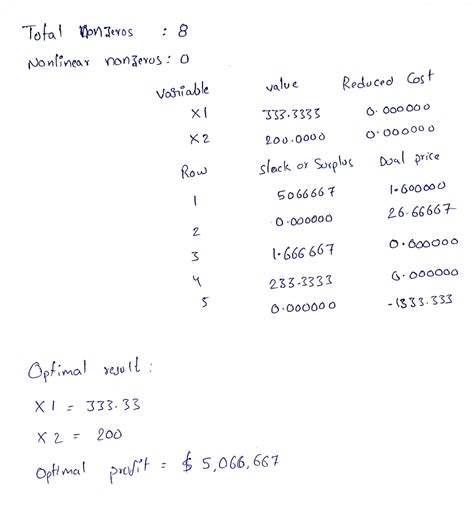 Total Nonzeros : 8
Nonlinear nonzeros : 0
Variable value Reduced Cost
X1 333.3333 0.000000
X2 200.0000 0.000000
Row slack or Surplus Dual price
1 5066667 1.600000
2 0.000000 26.66667
3 1.666667 0.000000
4 233.3333 0.000000
5 0.000000 -1333.333
Optimal result :
X1 = 333.33
X2 = 200
Optimal profit = $ 5,066,667